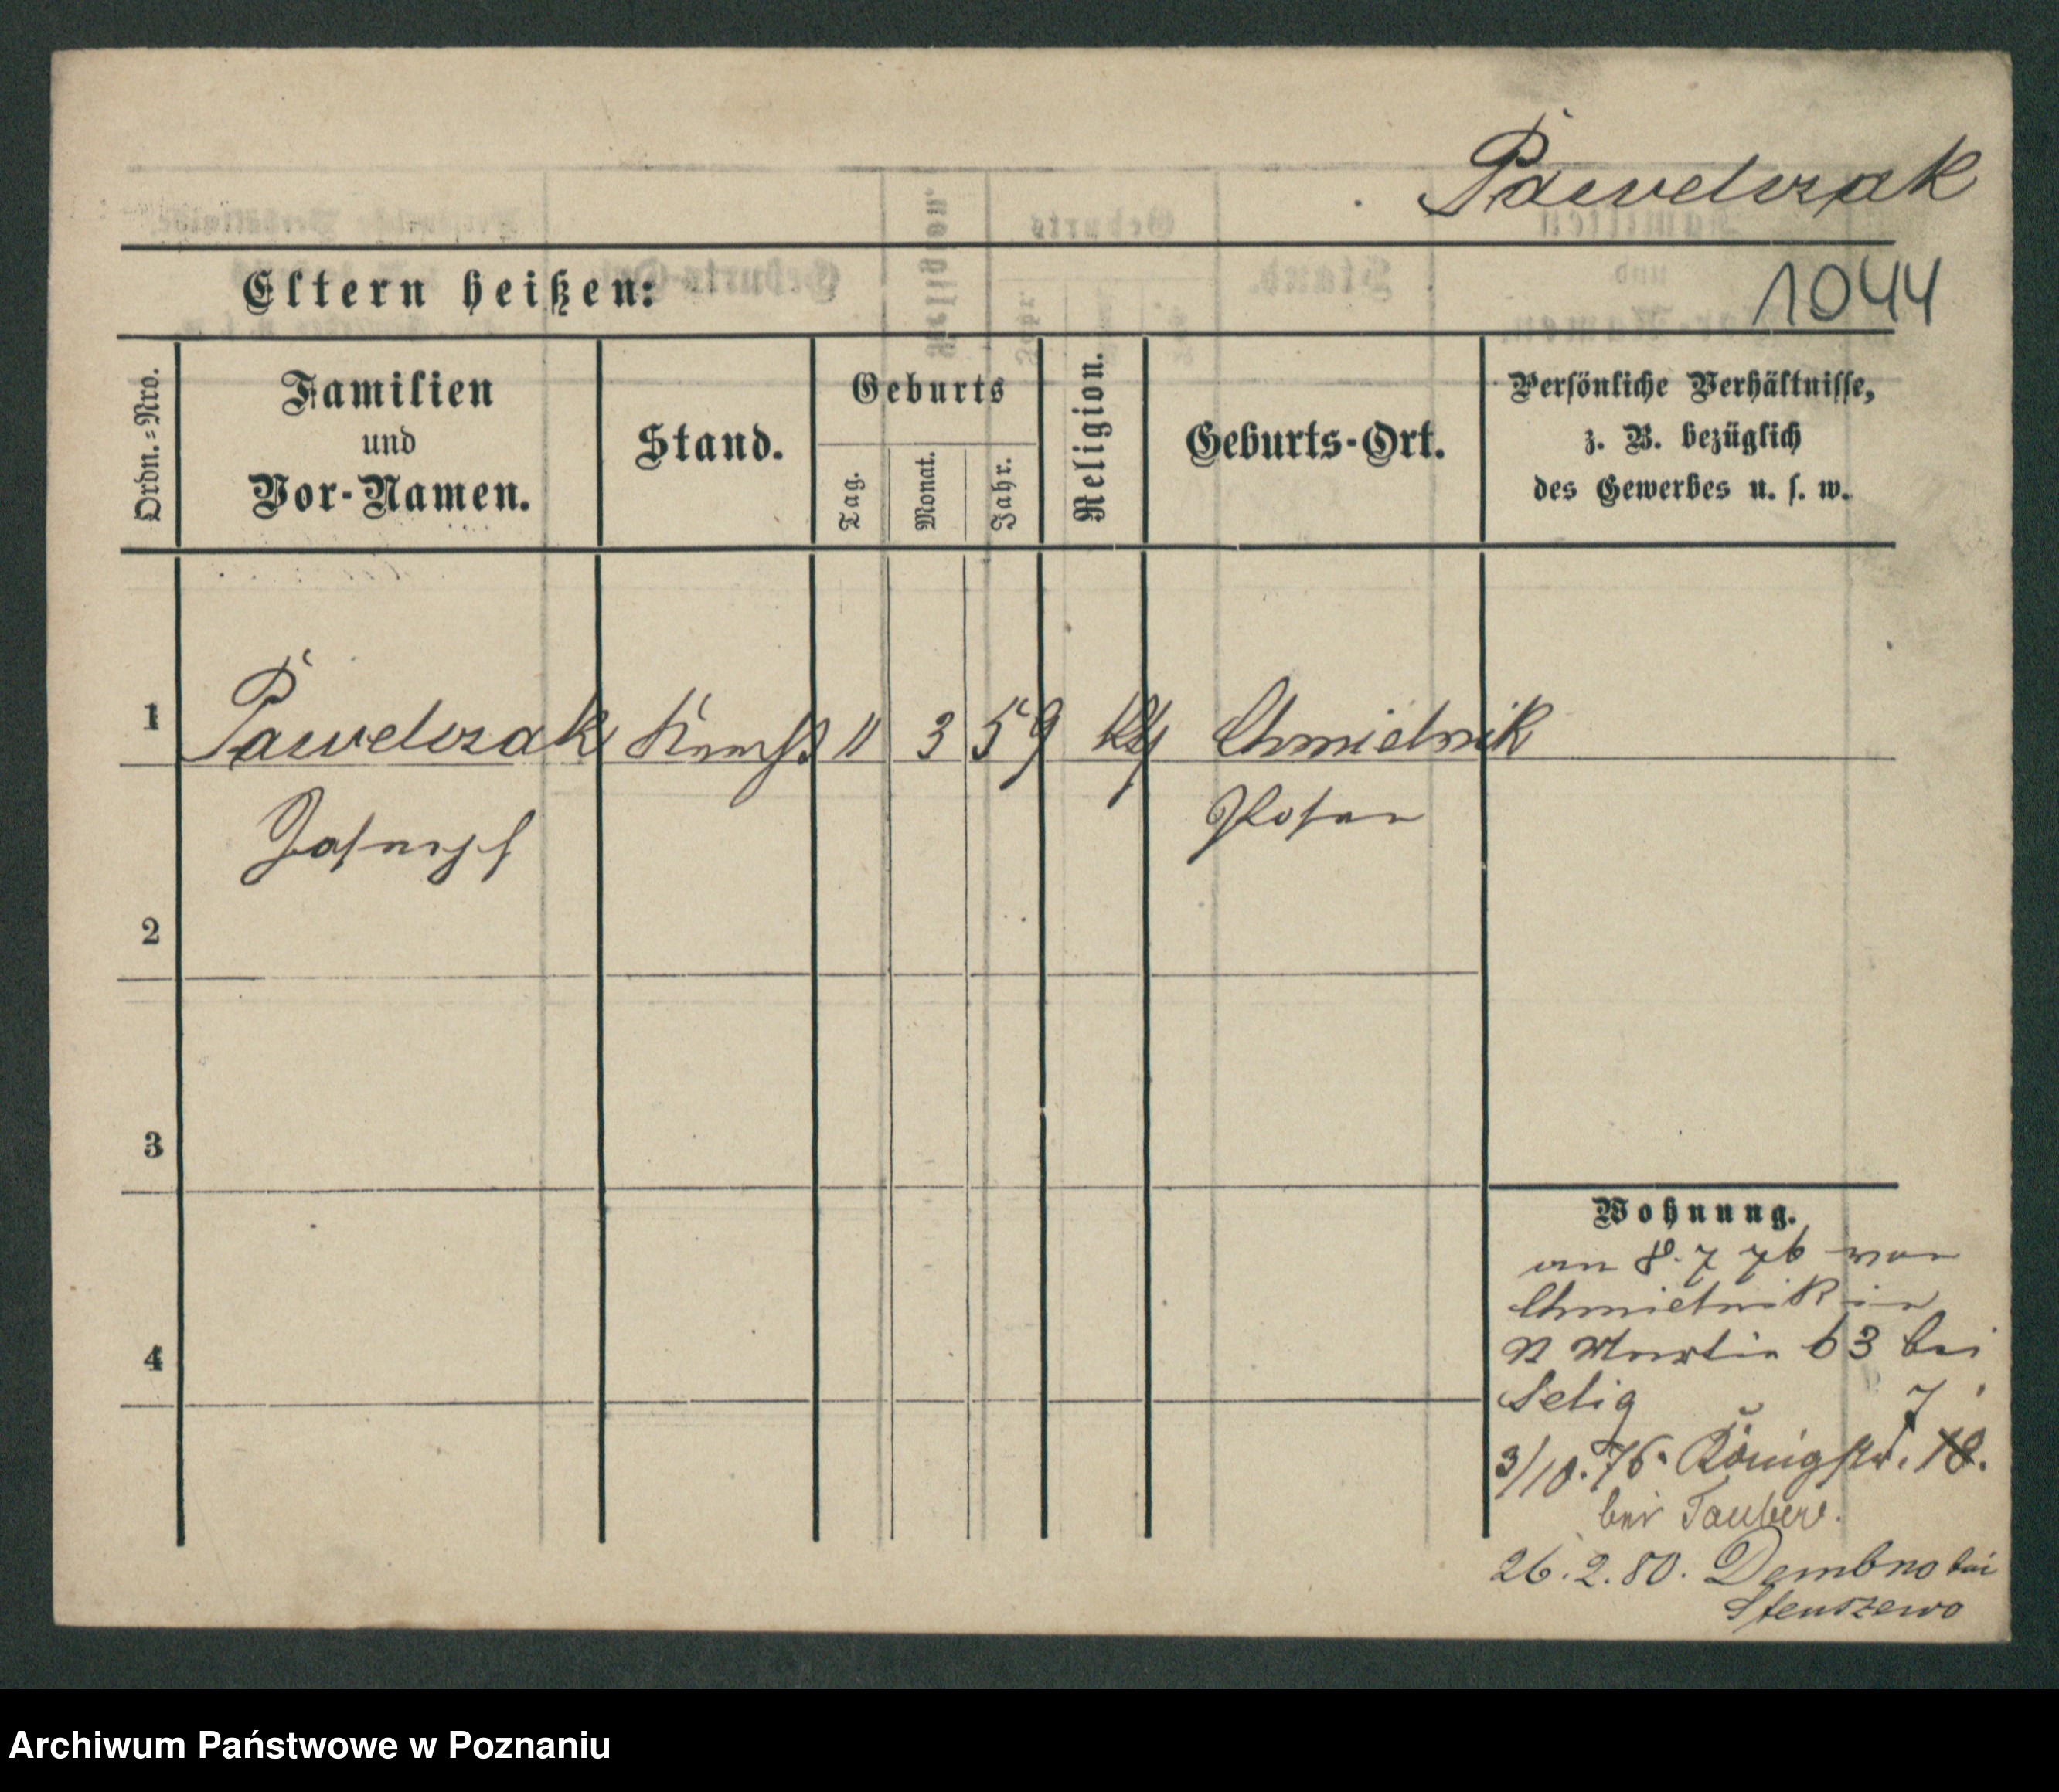 Pawelczak
1044
Eltern heißen:
Ordn.=Nro.
Familien
und
Vor-Namen.
Stand.
Geburts
Tag.
Monat.
Jahr.
Religion.
Geburts-Ort.
Persönliche Verhältnisse,
z. B. bezüglich
des Gewerbes u. s. w.
1 Pawelczak 11 3 59 Chmielnik
Posen
2
3
4
Wohnung.
am 8.7 76 von
Chmielnik in
Martin 63 bei
Selig 7
3/10.76. Königstr. 18.
bei Tauber.
26.2.80. Dembno bei
Stenszewo
Archiwum Państwowe w Poznaniu